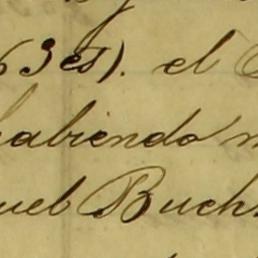 63 es). el
habiendo
uel Buch